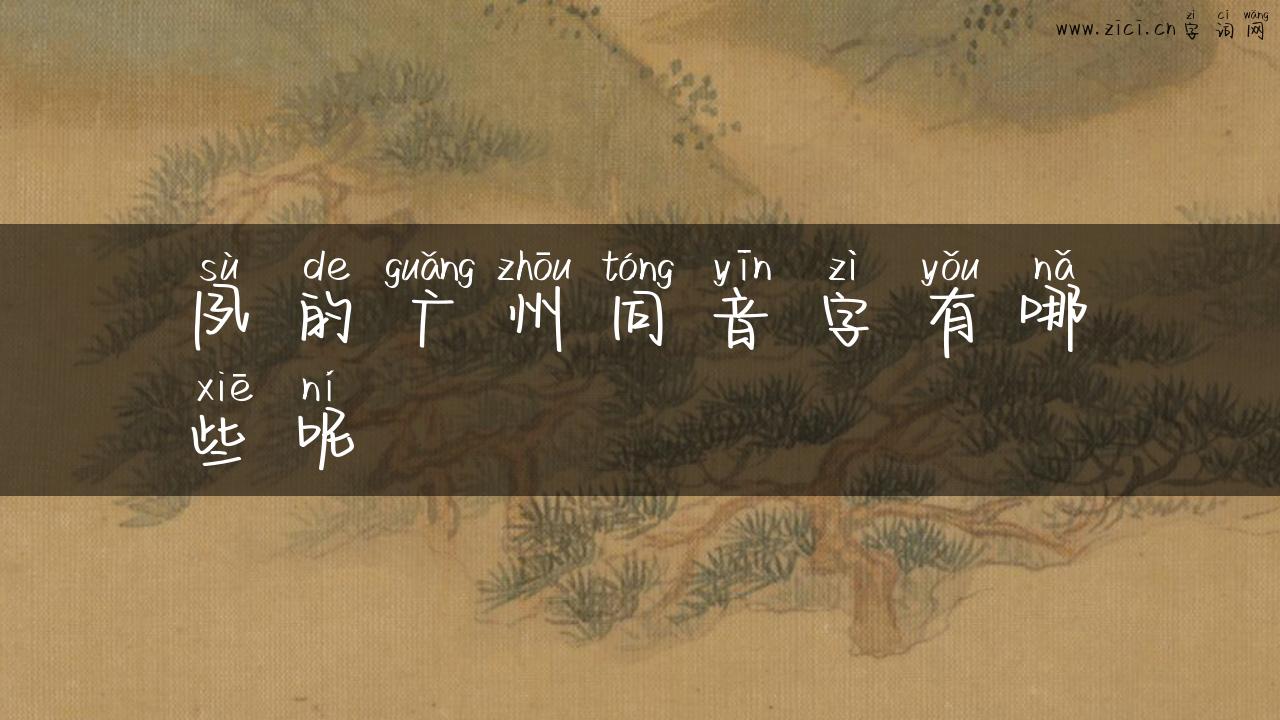 zì cí wǎng
www.zici.cn 字词网
sù de guǎng zhōu tóng yīn zì yǒu nǎ
夙的广州同音字有哪
xiē ní
些呢